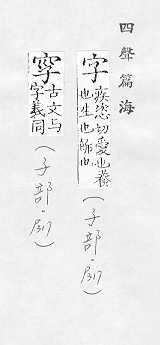 四聲篇海
字 疾恣切愛也養
也生也飾也
(子部·
古文与
字義同
(子部·